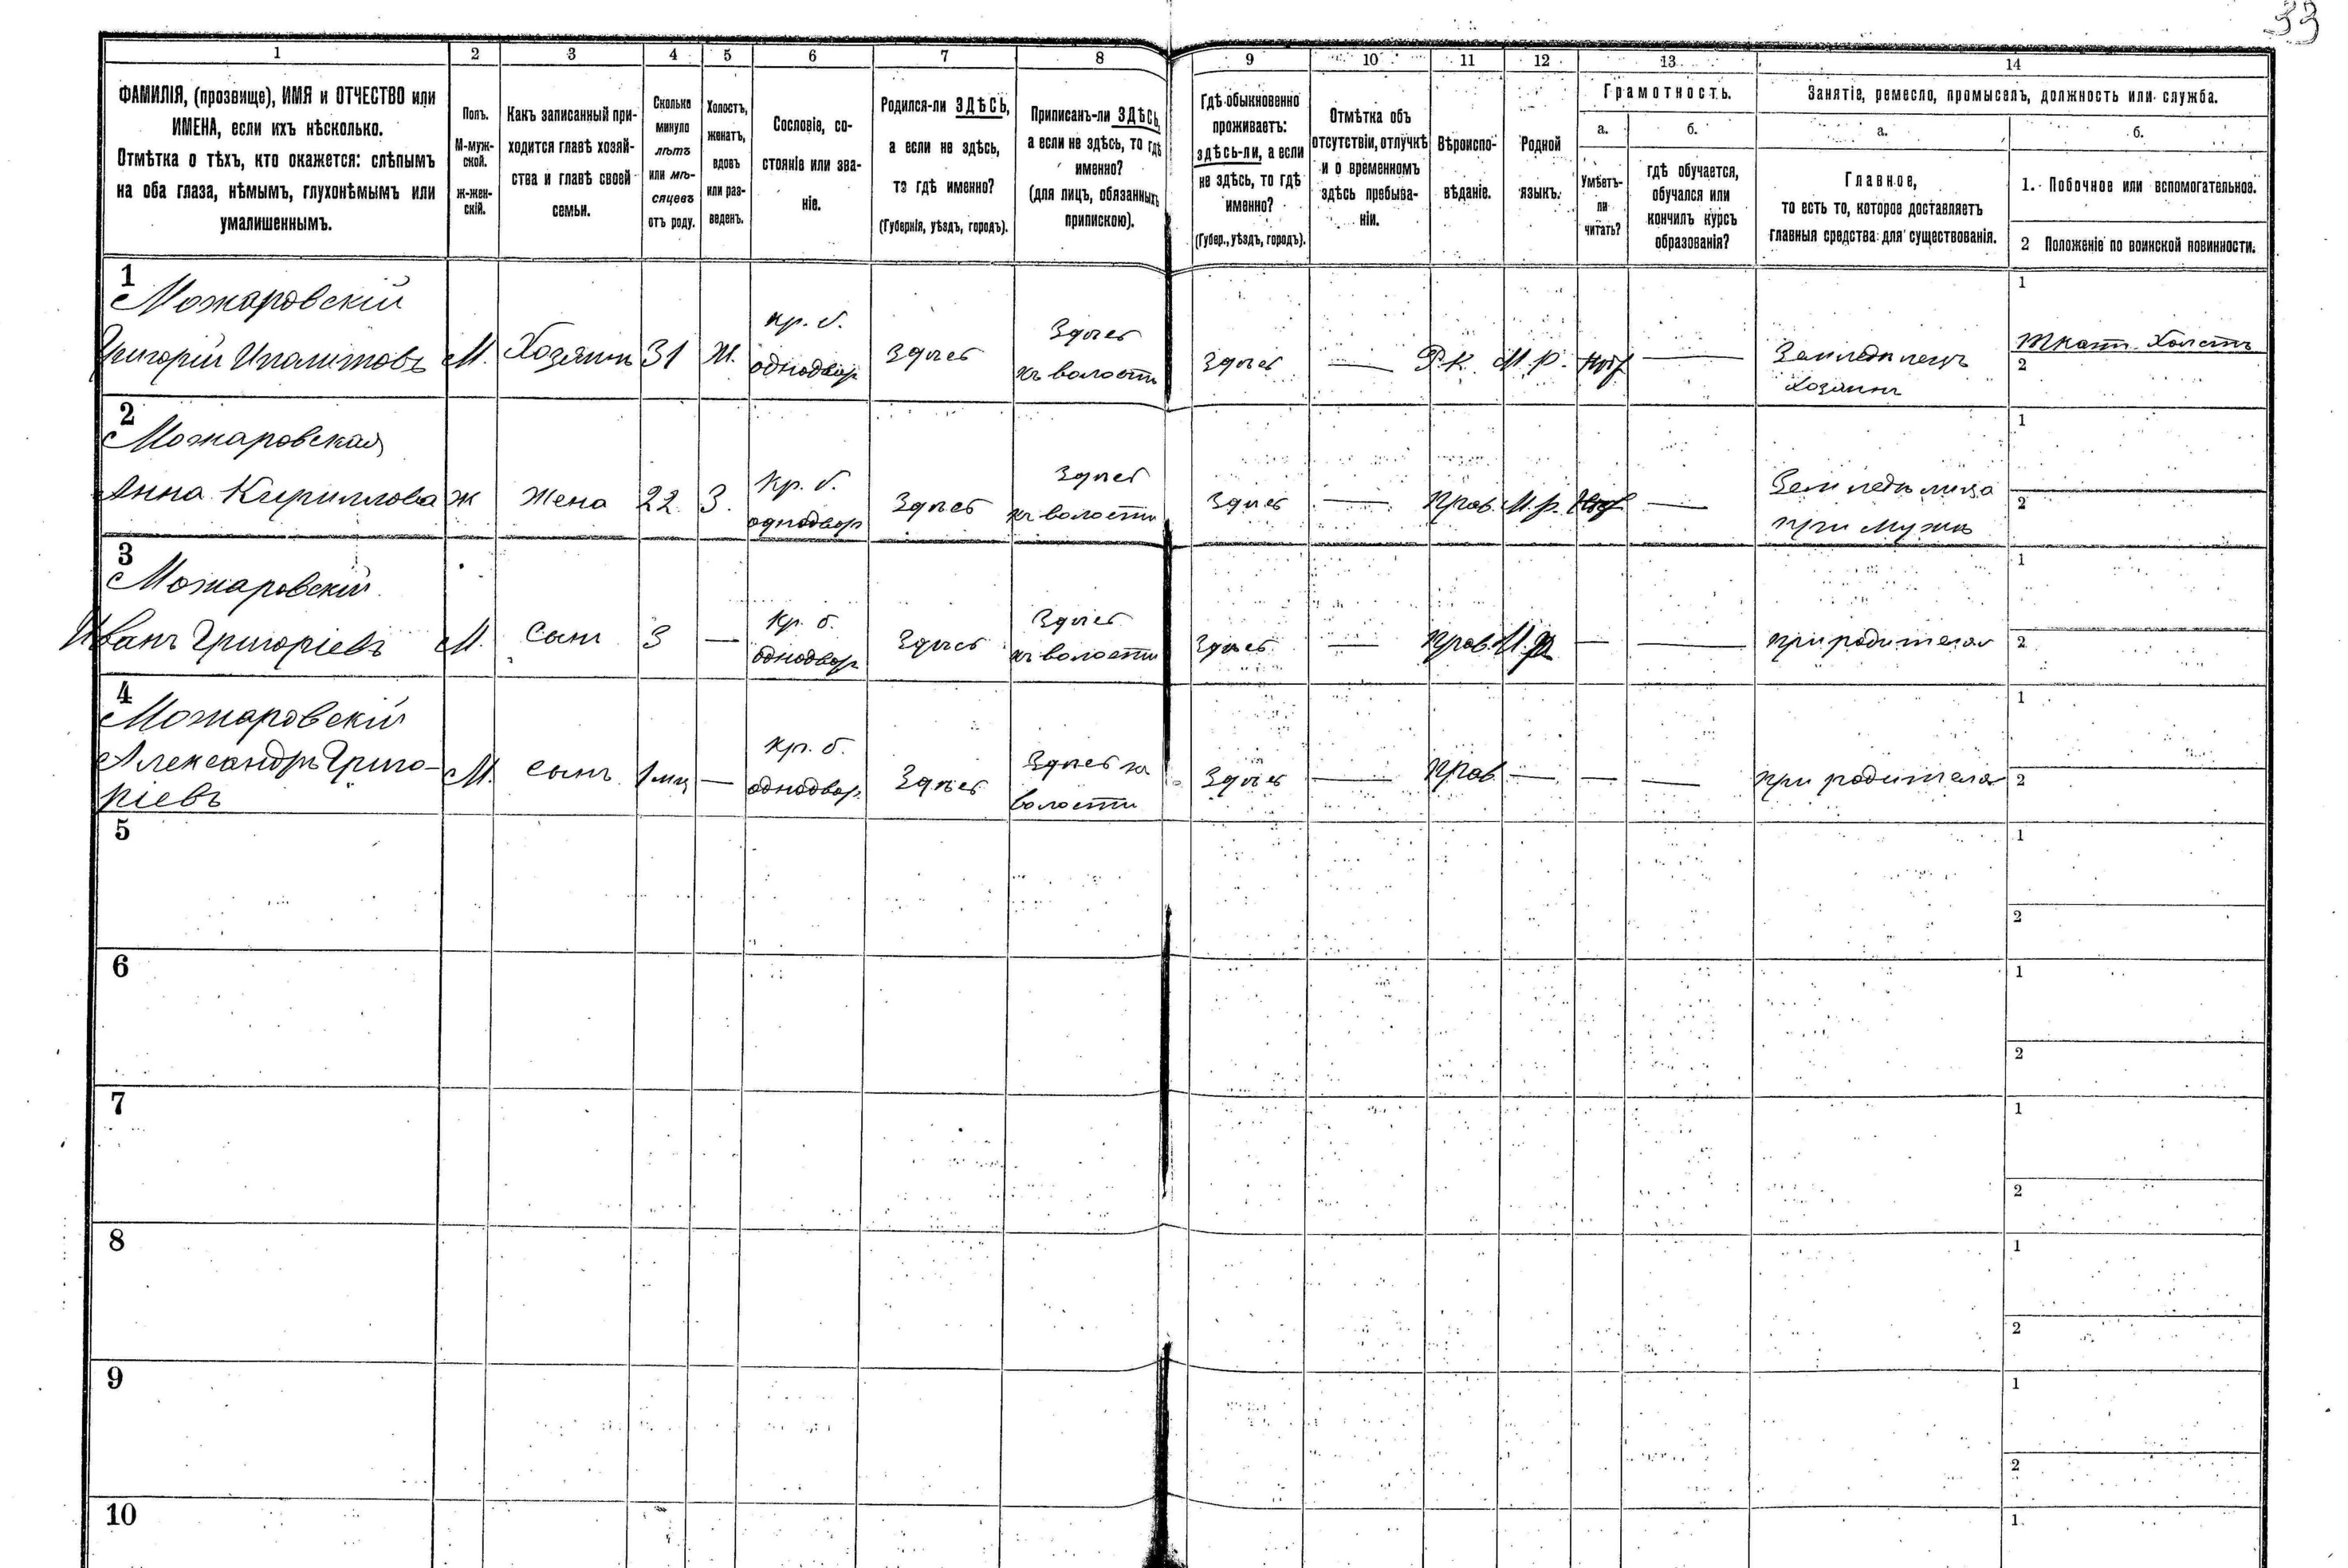 33
1 2 3 4 5 6 7 8 9 10 11 12 13 14
ФАМИЛІЯ, (прозвище), ИМЯ и ОТЧЕСТВО или
ИМЕНА, если ихъ нѣсколько.
Отмѣтка о тѣхъ, кто окажется: слѣпымъ
на оба глаза, нѣмымъ, глухонѣмымъ или
умалишеннымъ.
Полъ.
М-муж-
ской.
ж-жен-
скій.
Какъ записанный при-
ходится главѣ хозяй-
ства и главѣ своей
семьи.
Сколько
минуло
лѣтъ
или мѣ-
сяцевъ
отъ роду.
Холостъ,
женатъ,
вдовъ
или раз-
веденъ.
Сословіе, со-
стояніе или зва-
ніе.
Родился-ли ЗДѢСЬ,
а если не здѣсь,
то гдѣ именно?
(Губернія, уѣздъ, городъ).
Приписанъ-ли ЗДѢСЬ,
а если не здѣсь, то гдѣ
именно?
(для лицъ, обязанныхъ
припискою).
Гдѣ обыкновенно
проживаетъ:
здѣсь-ли, а если
не здѣсь, то гдѣ
именно?
(Губер., уѣздъ, городъ).
Отмѣтка объ
отсутствіи, отлучкѣ
и о временномъ
здѣсь пребыва-
ніи.
Вѣроиспо-
вѣданіе.
Родной
языкъ.
Грамотность.
а.
Умѣетъ-
ли
читать?
б.
гдѣ обучается,
обучался или
кончилъ курсъ
образованія?
Занятіе, ремесло, промыселъ, должность или служба.
а.
Главное,
то есть то, которое доставляетъ
главныя средства для существованія.
б.
1. Побочное или вспомогательное.
2 Положеніе по воинской повинности.
1
Можаровскій
Григорій Ипалитовъ
М. Хозяинъ 31 Ж.
кр. б.
однодвор
Здѣсь
Здѣсь
къ волости
Здѣсь — Р.К. М.р. —
Земледѣлецъ
Хозяинъ
1
Ткат. Холстъ
2
2
Можаровская
Анна Кириллова
ж Жена 22 З.
Кр. б.
однодвор
Здѣсь
Здѣсь
къ волости
Здѣсь — Прав. М.р. —
Земледѣлица
при мужѣ
1
2
3
Можаровскій
Иванъ Григоріевъ
М. Сынъ 3 —
Кр. б.
однодвор
Здѣсь
Здѣсь
къ волости
Здѣсь — Прав. М.р. — —
при родителях
1
2
4
Можаровскій
Александръ Григо-
ріевъ
М. Сынъ 1 мц —
Кр. б.
однодвор.
Здѣсь
Здѣсь къ
волости
Здѣсь — Прав — — —
при родителях
1
2
5
1
2
6
1
2
7
1
2
8
1
2
9
1
2
10
1